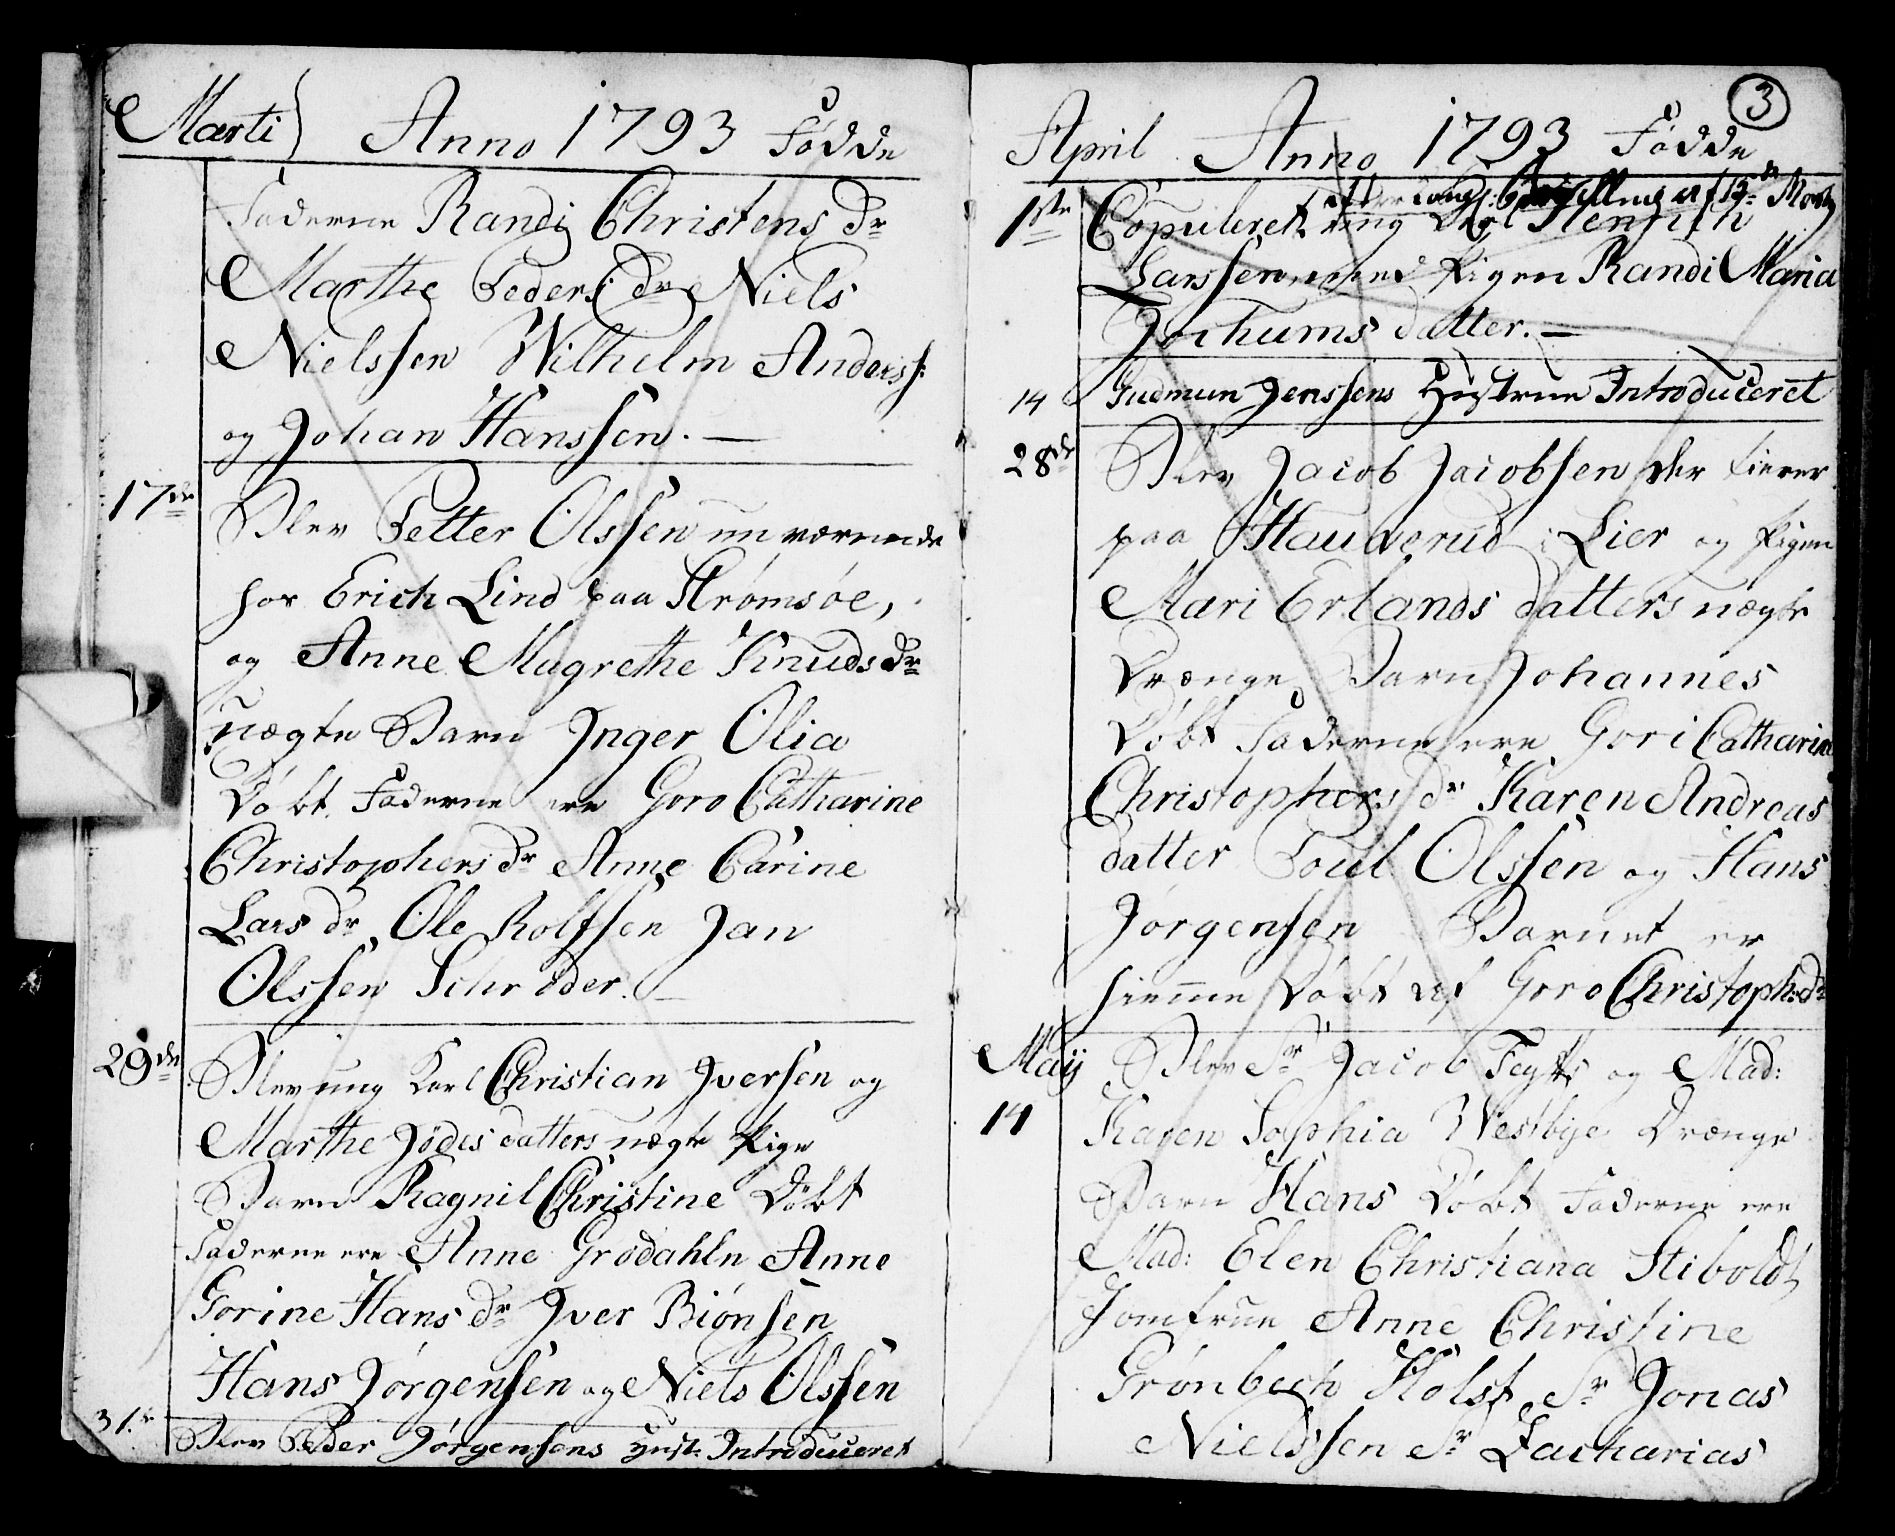 Marti Anno 1793 Fødde
Faderne Randi Christens Dr
Marthe Peders Dr Niels
Nielssen Wilhelm Anderss:
og Johan Hanssen. —
17de Blev Petter Olssen nu værende
hos Erich Lind paa Strømsøe,
og Anne Magrethe Knuds Dr
uægte Barn Inger Olia
Døbt. Faderne ere Goro Catharine
Christophers Dr Anne Carine
Lars Dr Ole Rolfsen Jan
Olssen Schrøder. —
29de Blev ung Karl Christian Iversen og
Marthe Jødes datters uægte Pige
Barn Ragnil Christine Døbt
Faderne ere Anne Grødahln Anne
Gorine Hans Dr Iver Biønsen
Hans Jørgensen og Niels Olssen
31te Blev Peder Jørgensens Hust: Introduceret
3
April Anno 1793 Fødde
efter Kongl: Bevilling af 15de Marty
1ste Copuleret ung Karl Henrich
Larssen, med Pigen Randi Maria
Jochums datter. —
14 Gudmun Jenssens Hustrue Introduceret
28de Blev Jacob Jacobsen der tiener
paa Hauverud i Lier og Pigen
Mari Erlands datters uægte
Drænge Barn Johannes
Døbt Faderne ere Gori Catharine
Christophers dr Karen Andreas
datter Poul Olssen og Hans
Jørgensen Barnet er
hiemme Døbt af Goro Christoph: Dr
Maij Blev Sr Jacob Fegts og Mad:
14 Karen Sophia Westbye Drænge
Barn Hans Døbt Faderne ere
Mad: Elen Christiana Stiboldt
Jomfrue Anne Christine
Grønbech Holst, Sr Jonas
Nielssen Sr Zacharias